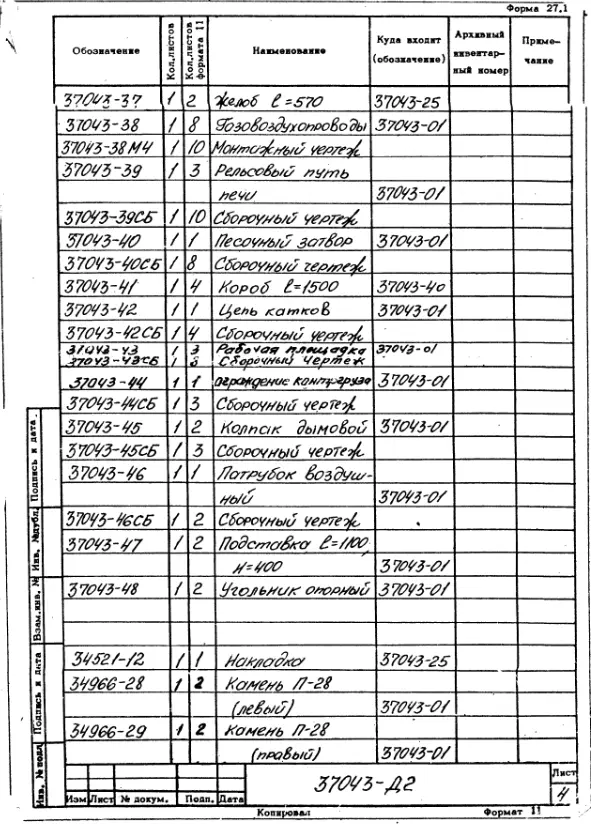 Форма 27.1
Обозначение Кол.листов Кол.листов формата 11 Наименование Куда входит (обозначение) Архивный инвентарный номер Примечание
37043-37 1 2 Желоб ℓ=570 37043-25
37043-38 1 8 Газовоздухопроводы 37043-01
37043-38МЧ 1 10 Монтажный чертеж
37043-39 1 3 Рельсовый путь
печи 37043-01
37043-39СБ 1 10 Сборочный чертеж
37043-40 1 1 Песочный затвор 37043-01
37043-40СБ 1 8 Сборочный чертеж
37043-41 1 4 Короб ℓ=1500 37043-40
37043-42 1 1 Цепь катков 37043-01
37043-42СБ 1 4 Сборочный чертеж
37043-43 1 3 Рабочая площадка 37043-01
37043-43СБ 1 3 Сборочный чертеж
37043-44 1 1 Ограждение контргруза 37043-01
37043-44СБ 1 3 Сборочный чертеж
37043-45 1 2 Колпак дымовой 37043-01
37043-45СБ 1 3 Сборочный чертеж
37043-46 1 1 Патрубок воздуш-
ный 37043-01
37043-46СБ 1 2 Сборочный чертеж
37043-47 1 2 Подставка ℓ=1100,
H=400 37043-01
37043-48 1 2 Угольник опорный 37043-01
34521-12 1 1 Накладка 37043-25
34966-28 1 2 Камень П-28
(левый) 37043-01
34966-29 1 2 Камень П-28
(правый) 37043-01
Подпись и дата
Инв. №дубл.
Взам.инв. №
Подпись и дата
Инв. №подл
37043-Д2
Лист
4
Изм Лист № докум. Подп. Дата
Копировал Формат 11